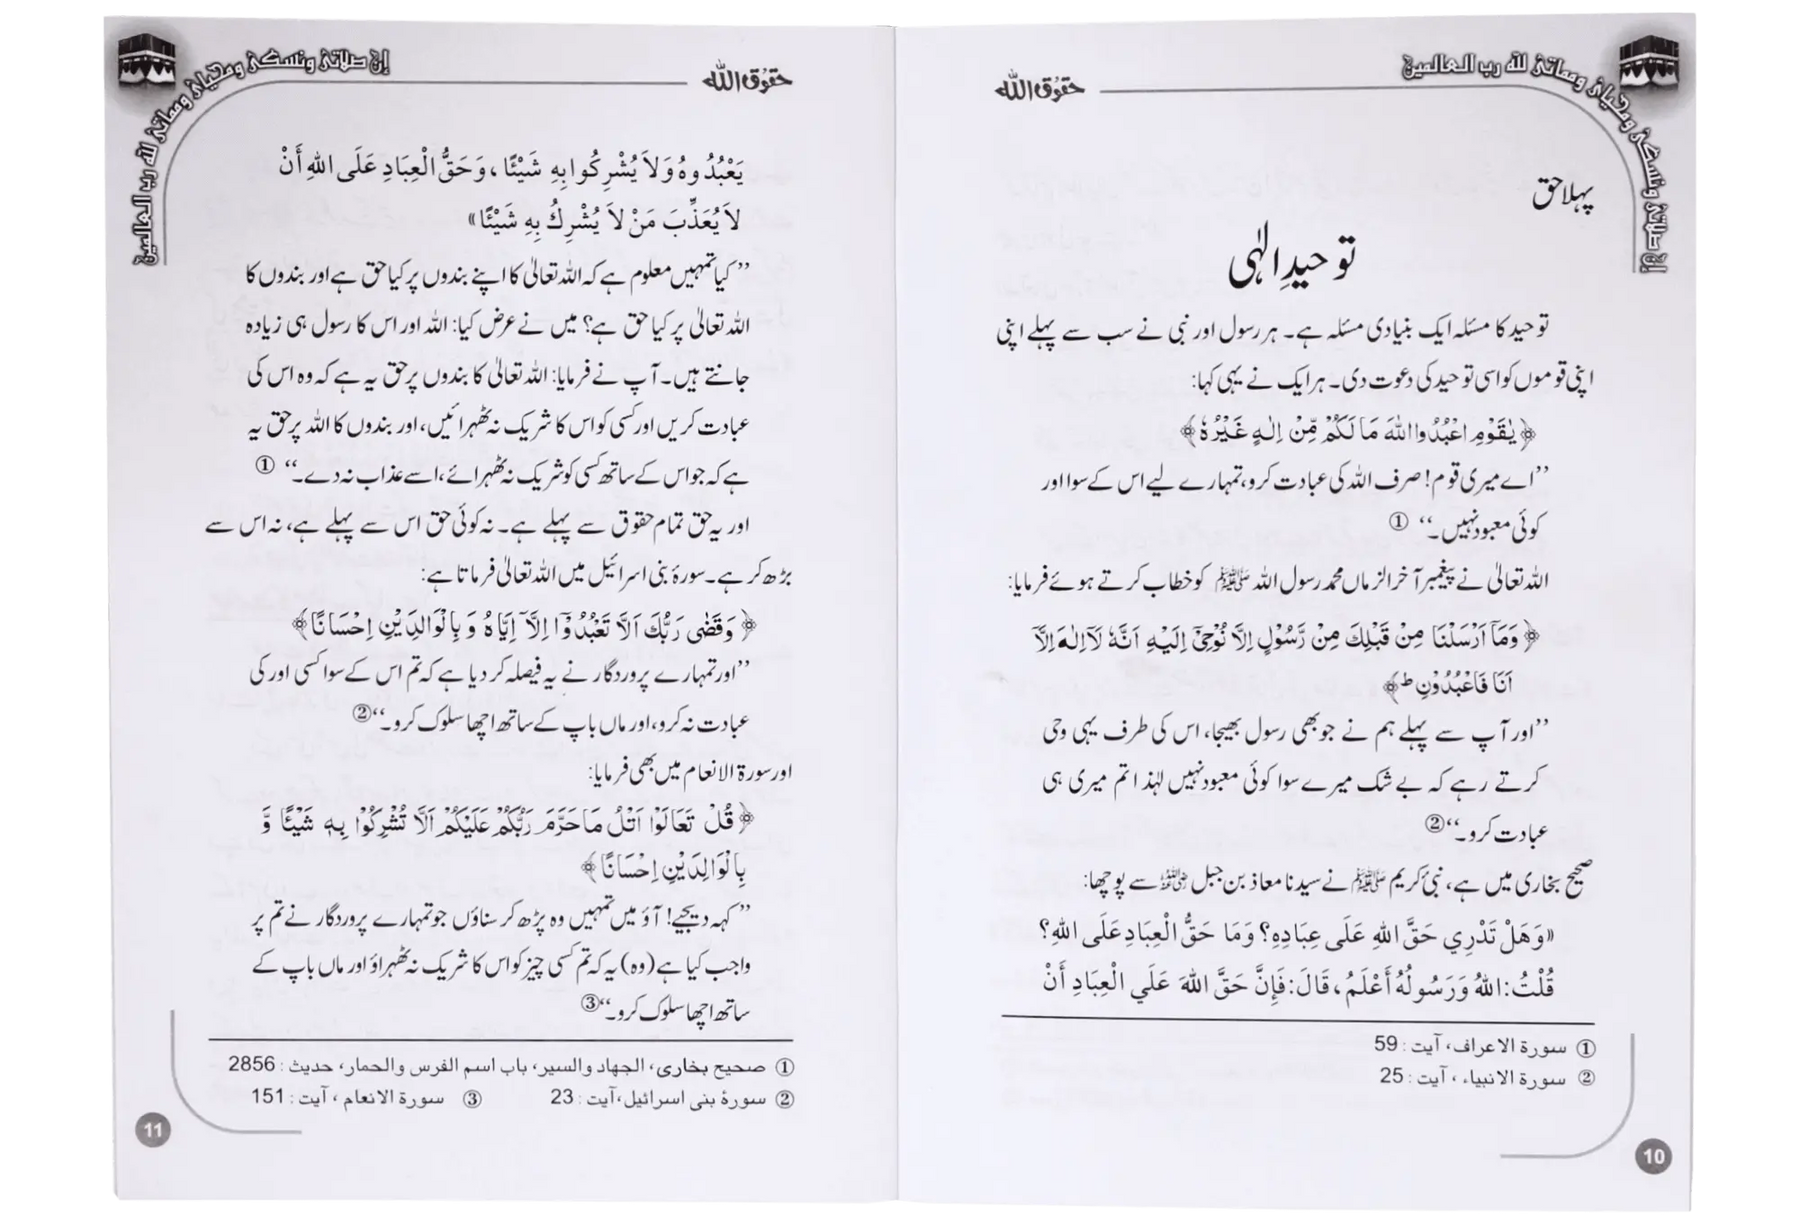 إن صلاتي ونسكي ومحياي ومماتي لله رب العالمين
حقوق اللہ
پہلا حق
توحیدِ الٰہی
توحید کا مسئلہ ایک بنیادی مسئلہ ہے۔ ہر رسول اور نبی نے سب سے پہلے اپنی
اپنی قوموں کو اسی توحید کی دعوت دی۔ ہر ایک نے یہی کہا:
﴿يٰقَوْمِ اعْبُدُوا اللّٰهَ مَا لَكُمْ مِّنْ اِلٰهٍ غَيْرُهٗ﴾
’’اے میری قوم! صرف اللہ کی عبادت کرو، تمہارے لیے اس کے سوا اور
کوئی معبود نہیں۔‘‘ ①
اللہ تعالیٰ نے پیغمبر آخر الزماں محمد رسول اللہ ﷺ کو خطاب کرتے ہوئے فرمایا:
﴿وَمَاۤ اَرْسَلْنَا مِنْ قَبْلِكَ مِنْ رَّسُوْلٍ اِلَّا نُوْحِيْۤ اِلَيْهِ اَنَّهٗ لَاۤ اِلٰهَ اِلَّاۤ
اَنَا فَاعْبُدُوْنِ ط﴾
’’اور آپ سے پہلے ہم نے جو بھی رسول بھیجا، اس کی طرف یہی وحی
کرتے رہے کہ بے شک میرے سوا کوئی معبود نہیں لہٰذا تم میری ہی
عبادت کرو۔‘‘ ②
صحیح بخاری میں ہے، نبیٔ کریم ﷺ نے سیدنا معاذ بن جبل رضی اللہ عنہ سے پوچھا:
«وَهَلْ تَدْرِي حَقَّ اللهِ عَلَى عِبَادِهِ؟ وَمَا حَقُّ الْعِبَادِ عَلَى اللهِ؟
قُلْتُ: اللهُ وَرَسُولُهُ أَعْلَمُ، قَالَ: فَإِنَّ حَقَّ اللهَ عَلَي الْعِبَادِ أَنْ
① سورة الاعراف، آیت: 59
② سورة الانبیاء، آیت: 25
10
إن صلاتي ونسكي ومحياي ومماتي لله رب العالمين
حقوق اللہ
يَعْبُدُوهُ وَلاَ يُشْرِكُوا بِهِ شَيْئًا، وَحَقُّ الْعِبَادِ عَلَى اللهِ أَنْ
لاَ يُعَذِّبَ مَنْ لاَ يُشْرِكُ بِهِ شَيْئًا»
’’کیا تمہیں معلوم ہے کہ اللہ تعالیٰ کا اپنے بندوں پر کیا حق ہے اور بندوں کا
اللہ تعالیٰ پر کیا حق ہے؟ میں نے عرض کیا: اللہ اور اس کا رسول ہی زیادہ
جانتے ہیں۔ آپ نے فرمایا: اللہ تعالیٰ کا بندوں پر حق یہ ہے کہ وہ اس کی
عبادت کریں اور کسی کو اس کا شریک نہ ٹھہرائیں، اور بندوں کا اللہ پر حق یہ
ہے کہ جو اس کے ساتھ کسی کو شریک نہ ٹھہرائے، اسے عذاب نہ دے۔‘‘ ①
اور یہ حق تمام حقوق سے پہلے ہے۔ نہ کوئی حق اس سے پہلے ہے، نہ اس سے
بڑھ کر ہے۔ سورۂ بنی اسرائیل میں اللہ تعالیٰ فرماتا ہے:
﴿وَقَضٰى رَبُّكَ اَلَّا تَعْبُدُوْۤا اِلَّاۤ اِيَّاهُ وَبِالْوَالِدَيْنِ اِحْسَانًا﴾
’’اور تمہارے پروردگار نے یہ فیصلہ کر دیا ہے کہ تم اس کے سوا کسی اور کی
عبادت نہ کرو، اور ماں باپ کے ساتھ اچھا سلوک کرو۔‘‘ ②
اور سورۃ الانعام میں بھی فرمایا:
﴿قُلْ تَعَالَوْا اَتْلُ مَا حَرَّمَ رَبُّكُمْ عَلَيْكُمْ اَلَّا تُشْرِكُوْا بِهٖ شَيْئًا وَّ
بِالْوَالِدَيْنِ اِحْسَانًا﴾
’’کہہ دیجیے! آؤ میں تمہیں وہ پڑھ کر سناؤں جو تمہارے پروردگار نے تم پر
واجب کیا ہے (وہ) یہ کہ تم کسی چیز کو اس کا شریک نہ ٹھہراؤ اور ماں باپ کے
ساتھ اچھا سلوک کرو۔‘‘ ③
① صحیح بخاری، الجهاد والسیر، باب اسم الفرس والحمار، حدیث: 2856
② سورۂ بنی اسرائیل، آیت: 23 ③ سورة الانعام، آیت: 151
11